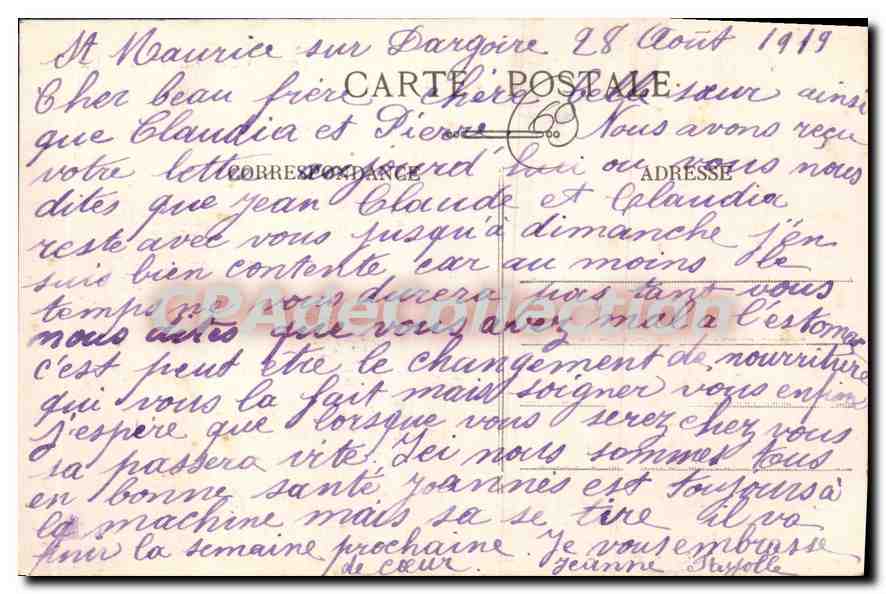 St Maurice sur Dargoire 28 Août 1919
CARTE POSTALE
Cher beau frère chère belle sœur ainsi
que Claudia et Pierre Nous avons reçu
votre lettre aujourd'hui ou vous nous
CORRESPONDANCE ADRESSE
dites que Jean Claude et Claudia
reste avec vous jusqu'à dimanche j'en
suis bien contente car au moins le
temps ne vous durera pas tant vous
CPAdeCollection
nous dites que vous avez mal a l'estomac
c'est peut être le changement de nourriture
qui vous la fait mais soigner vous enfin
J'espère que lorsque vous serez chez vous
sa passera vite. Ici nous sommes tous
en bonne santé Joannès est toujours à
la machine mais sa se tire il va
finir la semaine prochaine. Je vous embrasse
de cœur. Jeanne